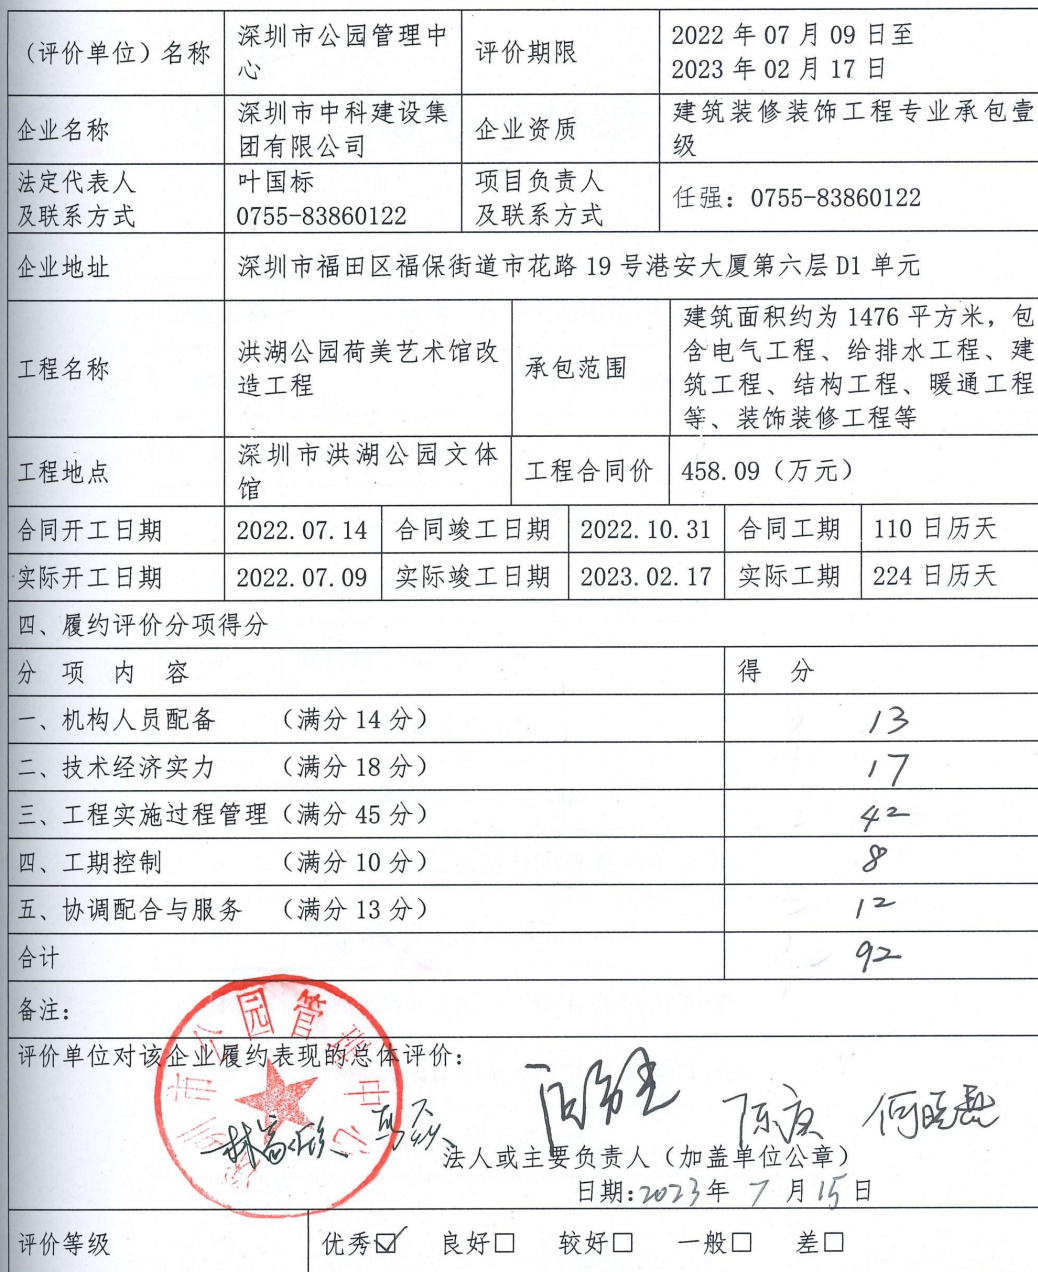 （评价单位）名称 深圳市公园管理中心 评价期限 2022 年 07 月 09 日至 2023 年 02 月 17 日
企业名称 深圳市中科建设集团有限公司 企业资质 建筑装修装饰工程专业承包壹级
法定代表人及联系方式 叶国标 0755-83860122 项目负责人及联系方式 任强：0755-83860122
企业地址 深圳市福田区福保街道市花路 19 号港安大厦第六层 D1 单元
工程名称 洪湖公园荷美艺术馆改造工程 承包范围 建筑面积约为 1476 平方米，包含电气工程、给排水工程、建筑工程、结构工程、暖通工程等、装饰装修工程等
工程地点 深圳市洪湖公园文体馆 工程合同价 458.09（万元）
合同开工日期 2022.07.14 合同竣工日期 2022.10.31 合同工期 110 日历天
实际开工日期 2022.07.09 实际竣工日期 2023.02.17 实际工期 224 日历天
四、履约评价分项得分
分 项 内 容 得 分
一、机构人员配备 （满分 14 分） 13
二、技术经济实力 （满分 18 分） 17
三、工程实施过程管理（满分 45 分） 42
四、工期控制 （满分 10 分） 8
五、协调配合与服务 （满分 13 分） 12
合计 92
备注：
评价单位对该企业履约表现的总体评价：
深圳市公园管理中心
陈庚 何晓燕
法人或主要负责人（加盖单位公章）
日期:2023年 7 月 15 日
评价等级 优秀☑ 良好□ 较好□ 一般□ 差□